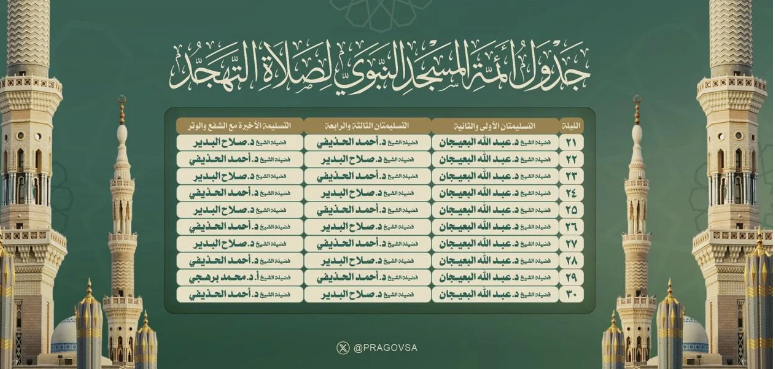 جَدْوَلُ أَئِمَّةِ المَسْجِدِ النَّبَوِيِّ لِصَلَاةِ التَّهَجُّدِ
الليلة التسليمتان الأولى والثانية التسليمتان الثالثة والرابعة التسليمة الأخيرة مع الشفع والوتر
٢١ فضيلة الشيخ د. عبد الله البعيجان فضيلة الشيخ د. أحمد الحذيفي فضيلة الشيخ د. صلاح البدير
٢٢ فضيلة الشيخ د. عبد الله البعيجان فضيلة الشيخ د. صلاح البدير فضيلة الشيخ د. أحمد الحذيفي
٢٣ فضيلة الشيخ د. عبد الله البعيجان فضيلة الشيخ د. أحمد الحذيفي فضيلة الشيخ د. صلاح البدير
٢٤ فضيلة الشيخ د. عبد الله البعيجان فضيلة الشيخ د. صلاح البدير فضيلة الشيخ د. أحمد الحذيفي
٢٥ فضيلة الشيخ د. عبد الله البعيجان فضيلة الشيخ د. أحمد الحذيفي فضيلة الشيخ د. صلاح البدير
٢٦ فضيلة الشيخ د. عبد الله البعيجان فضيلة الشيخ د. صلاح البدير فضيلة الشيخ د. أحمد الحذيفي
٢٧ فضيلة الشيخ د. عبد الله البعيجان فضيلة الشيخ د. أحمد الحذيفي فضيلة الشيخ د. صلاح البدير
٢٨ فضيلة الشيخ د. عبد الله البعيجان فضيلة الشيخ د. صلاح البدير فضيلة الشيخ د. أحمد الحذيفي
٢٩ فضيلة الشيخ د. عبد الله البعيجان فضيلة الشيخ د. أحمد الحذيفي فضيلة الشيخ أ. د. محمد برهجي
٣٠ فضيلة الشيخ د. عبد الله البعيجان فضيلة الشيخ د. صلاح البدير فضيلة الشيخ د. أحمد الحذيفي
@PRAGOVSA